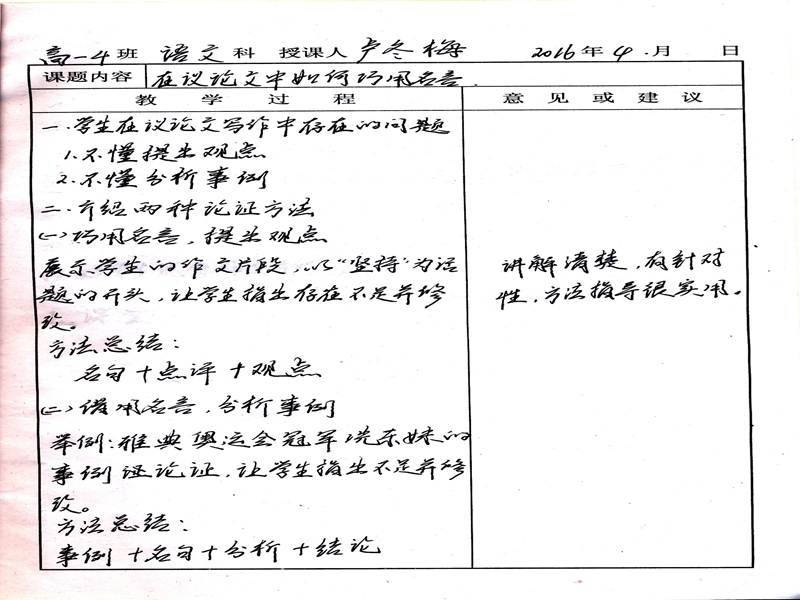 高一4 班 语文 科 授课人 卢冬梅 2016 年 4 月 日
课题内容 在议论文中如何巧用名言.
教 学 过 程 意 见 或 建 议
一.学生在议论文写作中存在的问题
1.不懂提出观点
2.不懂分析事例
二.介绍两种论证方法
(一)巧用名言,提出观点
展示学生的作文片段,以“坚持”为话
题的开头,让学生指出存在不足并修
改。
讲解清楚,有针对
性,方法指导很实用。
方法总结:
名句+点评+观点
(二)借用名言,分析事例
举例:雅典奥运会冠军冼东妹的
事例 论证,让学生指出不足并修
改。
方法总结:
事例+名句+分析+结论